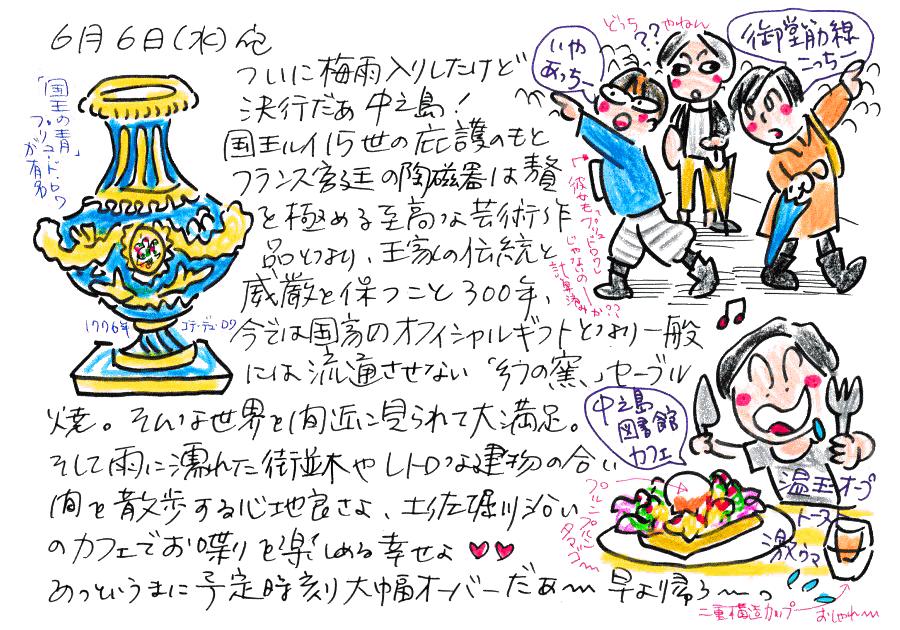 6月6日(水)
ついに梅雨入りしたけど
決行だぁ 中之島!
国王ルイ15世の庇護のもと
フランス宮廷の陶磁器は贅
を極める至高な芸術作
品となり、王家の伝統と
威厳を保つこと300年、
今では国家のオフィシャルギフトとなり一般
には流通させない「幻の窯」セーブル
焼。そんな世界を間近に見られて大満足。
そして雨に濡れた街並木やレトロな建物の合い
間を散歩する心地良さよ、土佐堀川沿い
のカフェでお喋りを楽しめる幸せよ♥♥
あっというまに予定時刻大幅オーバーだぁ〜 早よ帰ろ〜っ
「国王の青」
ブリュ・ド・ロワ
が有名
1776年
どっち
やねん
??
いや
あっち
御堂筋線
こっち
じゃないの
計算済みか??
♫
中之島
図書館
カフェ
プルンプルン
タマゴ〜
温玉オープ
トースト
激ウマ
二重構造カップ
おしゃれ〜